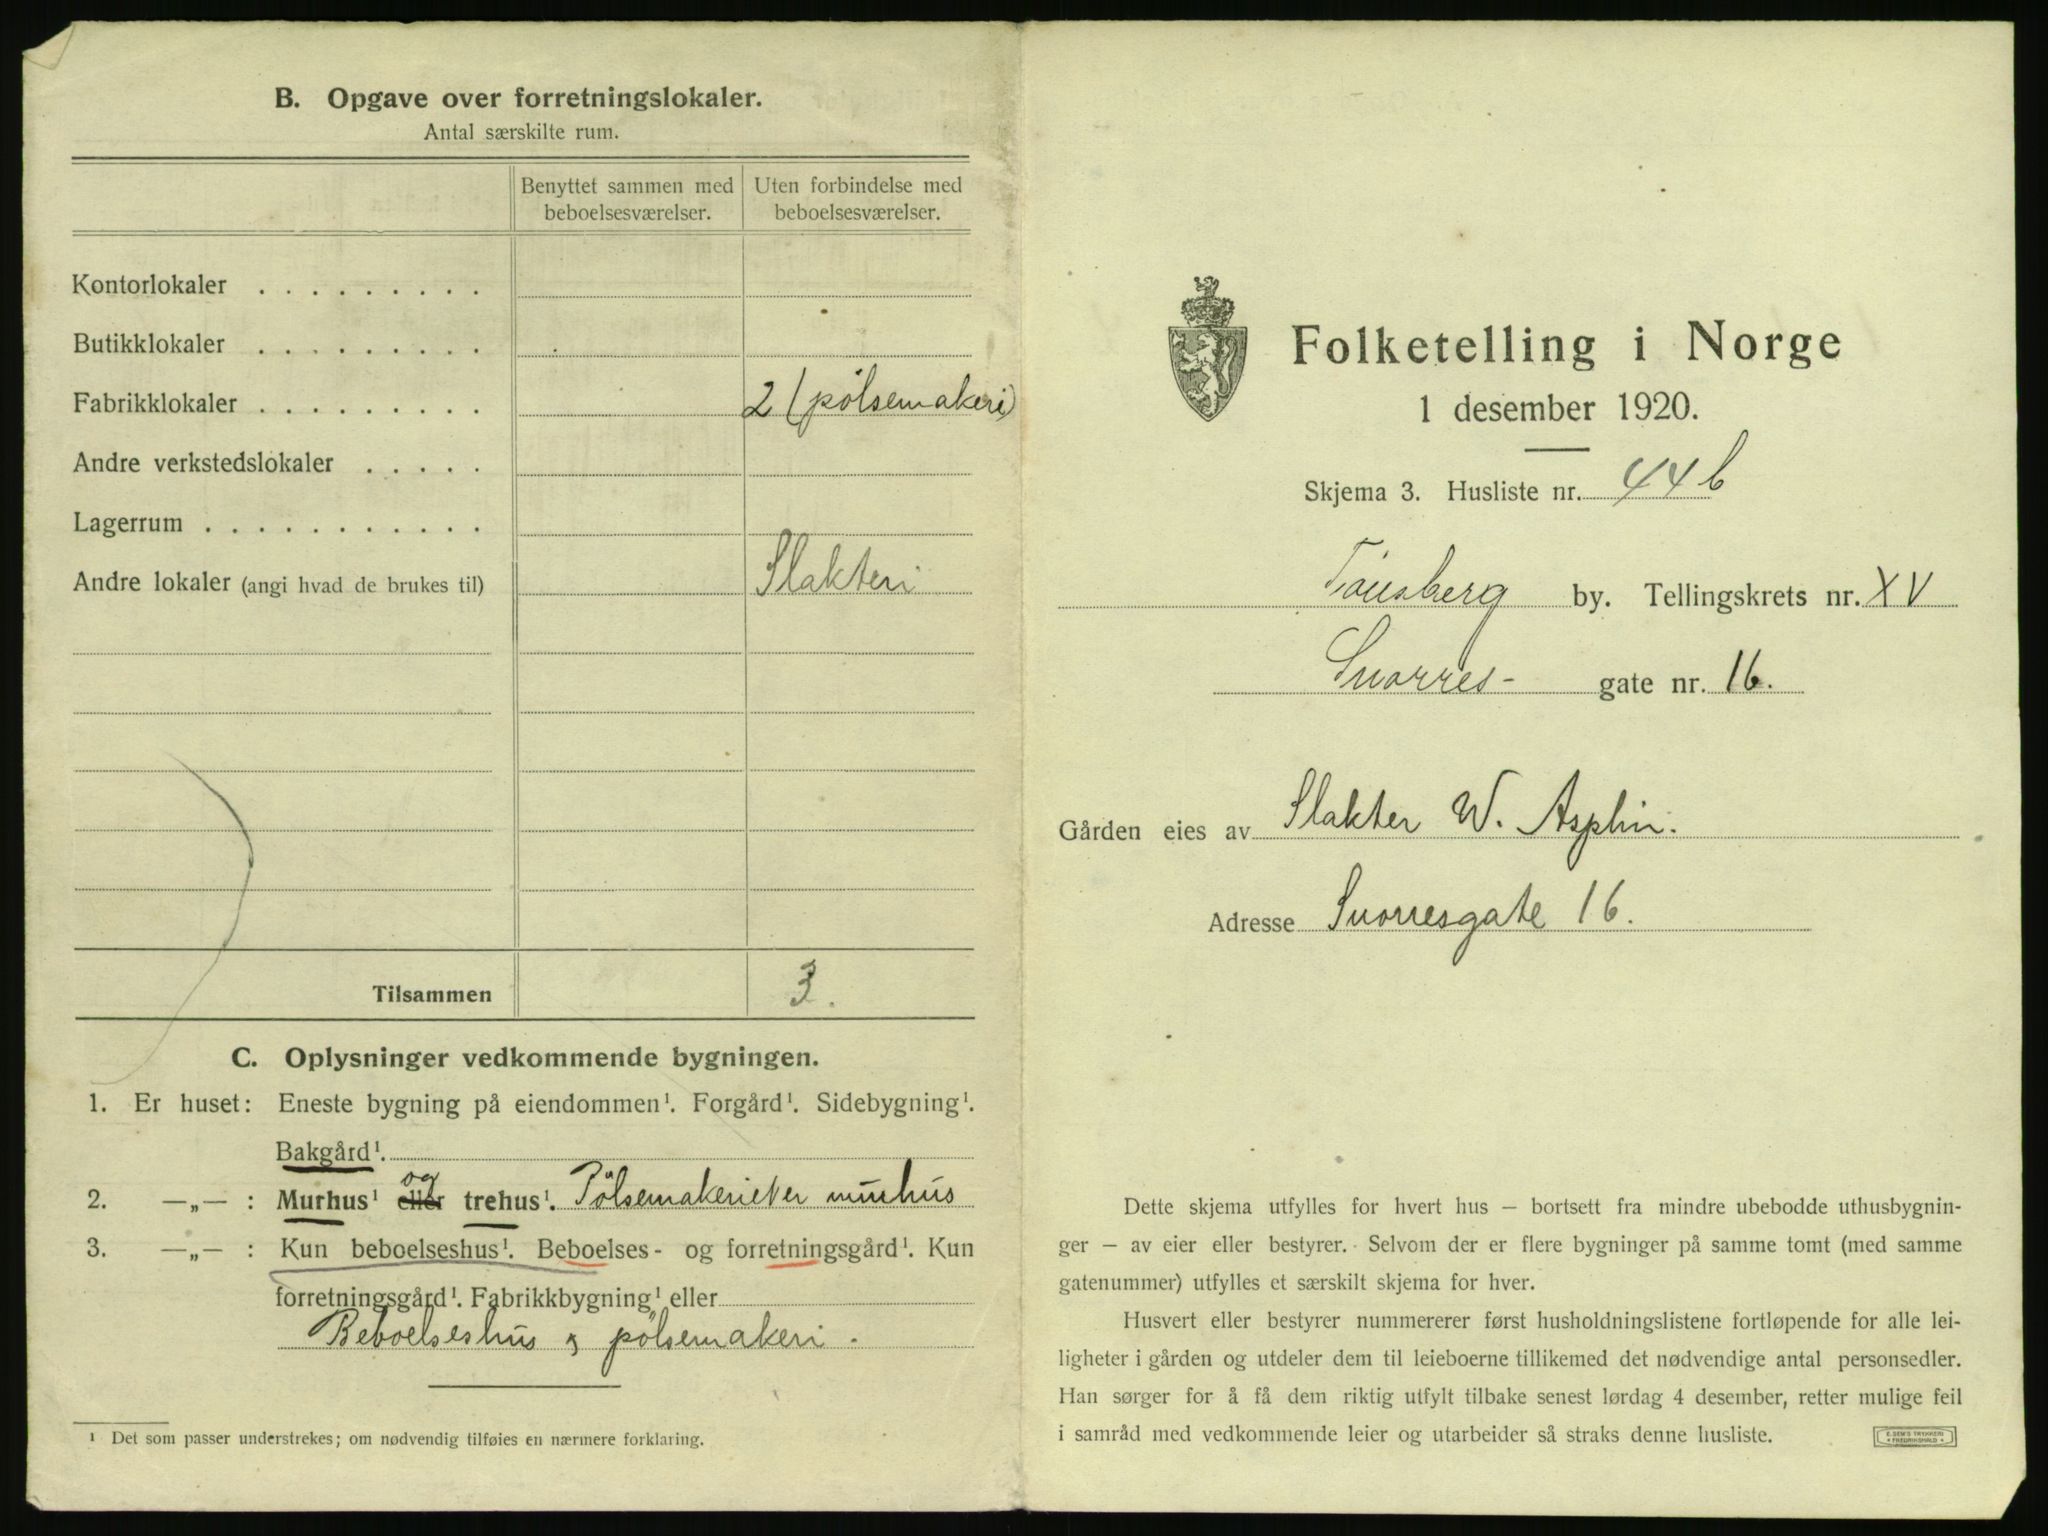 B. Opgave over forretningslokaler.
Antal særskilte rum.
Benyttet sammen med beboelsesværelser.
Uten forbindelse med beboelsesværelser.
Kontorlokaler . . . . . . . . .
Butikklokaler . . . . . . . . .
Fabrikklokaler . . . . . . . . . 2 (pölsemakeri)
Andre verkstedslokaler . . . . .
Lagerrum . . . . . . . . . . .
Andre lokaler (angi hvad de brukes til) Slakteri
Tilsammen 3.
C. Oplysninger vedkommende bygningen.
1. Er huset: Eneste bygning på eiendommen¹. Forgård¹. Sidebygning¹.
Bakgård¹.
og
2. —„— : Murhus¹ eller trehus¹. Pölsemakeriet er murhus
3. —„— : Kun beboelseshus¹. Beboelses- og forretningsgård¹. Kun
forretningsgård¹. Fabrikkbygning¹ eller
Beboelseshus og pölsemakeri.
¹ Det som passer understrekes; om nødvendig tilføies en nærmere forklaring.
Folketelling i Norge
1 desember 1920.
Skjema 3. Husliste nr. 44b
Tönsberg by. Tellingskrets nr. XV
Snorres- gate nr. 16.
Gården eies av Slakter W. Asplin.
Adresse Snorresgate 16.
Dette skjema utfylles for hvert hus — bortsett fra mindre ubebodde uthusbygnin-
ger — av eier eller bestyrer. Selvom der er flere bygninger på samme tomt (med samme
gatenummer) utfylles et særskilt skjema for hver.
Husvert eller bestyrer nummererer først husholdningslistene fortløpende for alle lei-
ligheter i gården og utdeler dem til leieboerne tillikemed det nødvendige antal personsedler.
Han sørger for å få dem riktig utfylt tilbake senest lørdag 4 desember, retter mulige feil
i samråd med vedkommende leier og utarbeider så straks denne husliste.
E. SEM'S TRYKKERI
FREDRIKSHALD